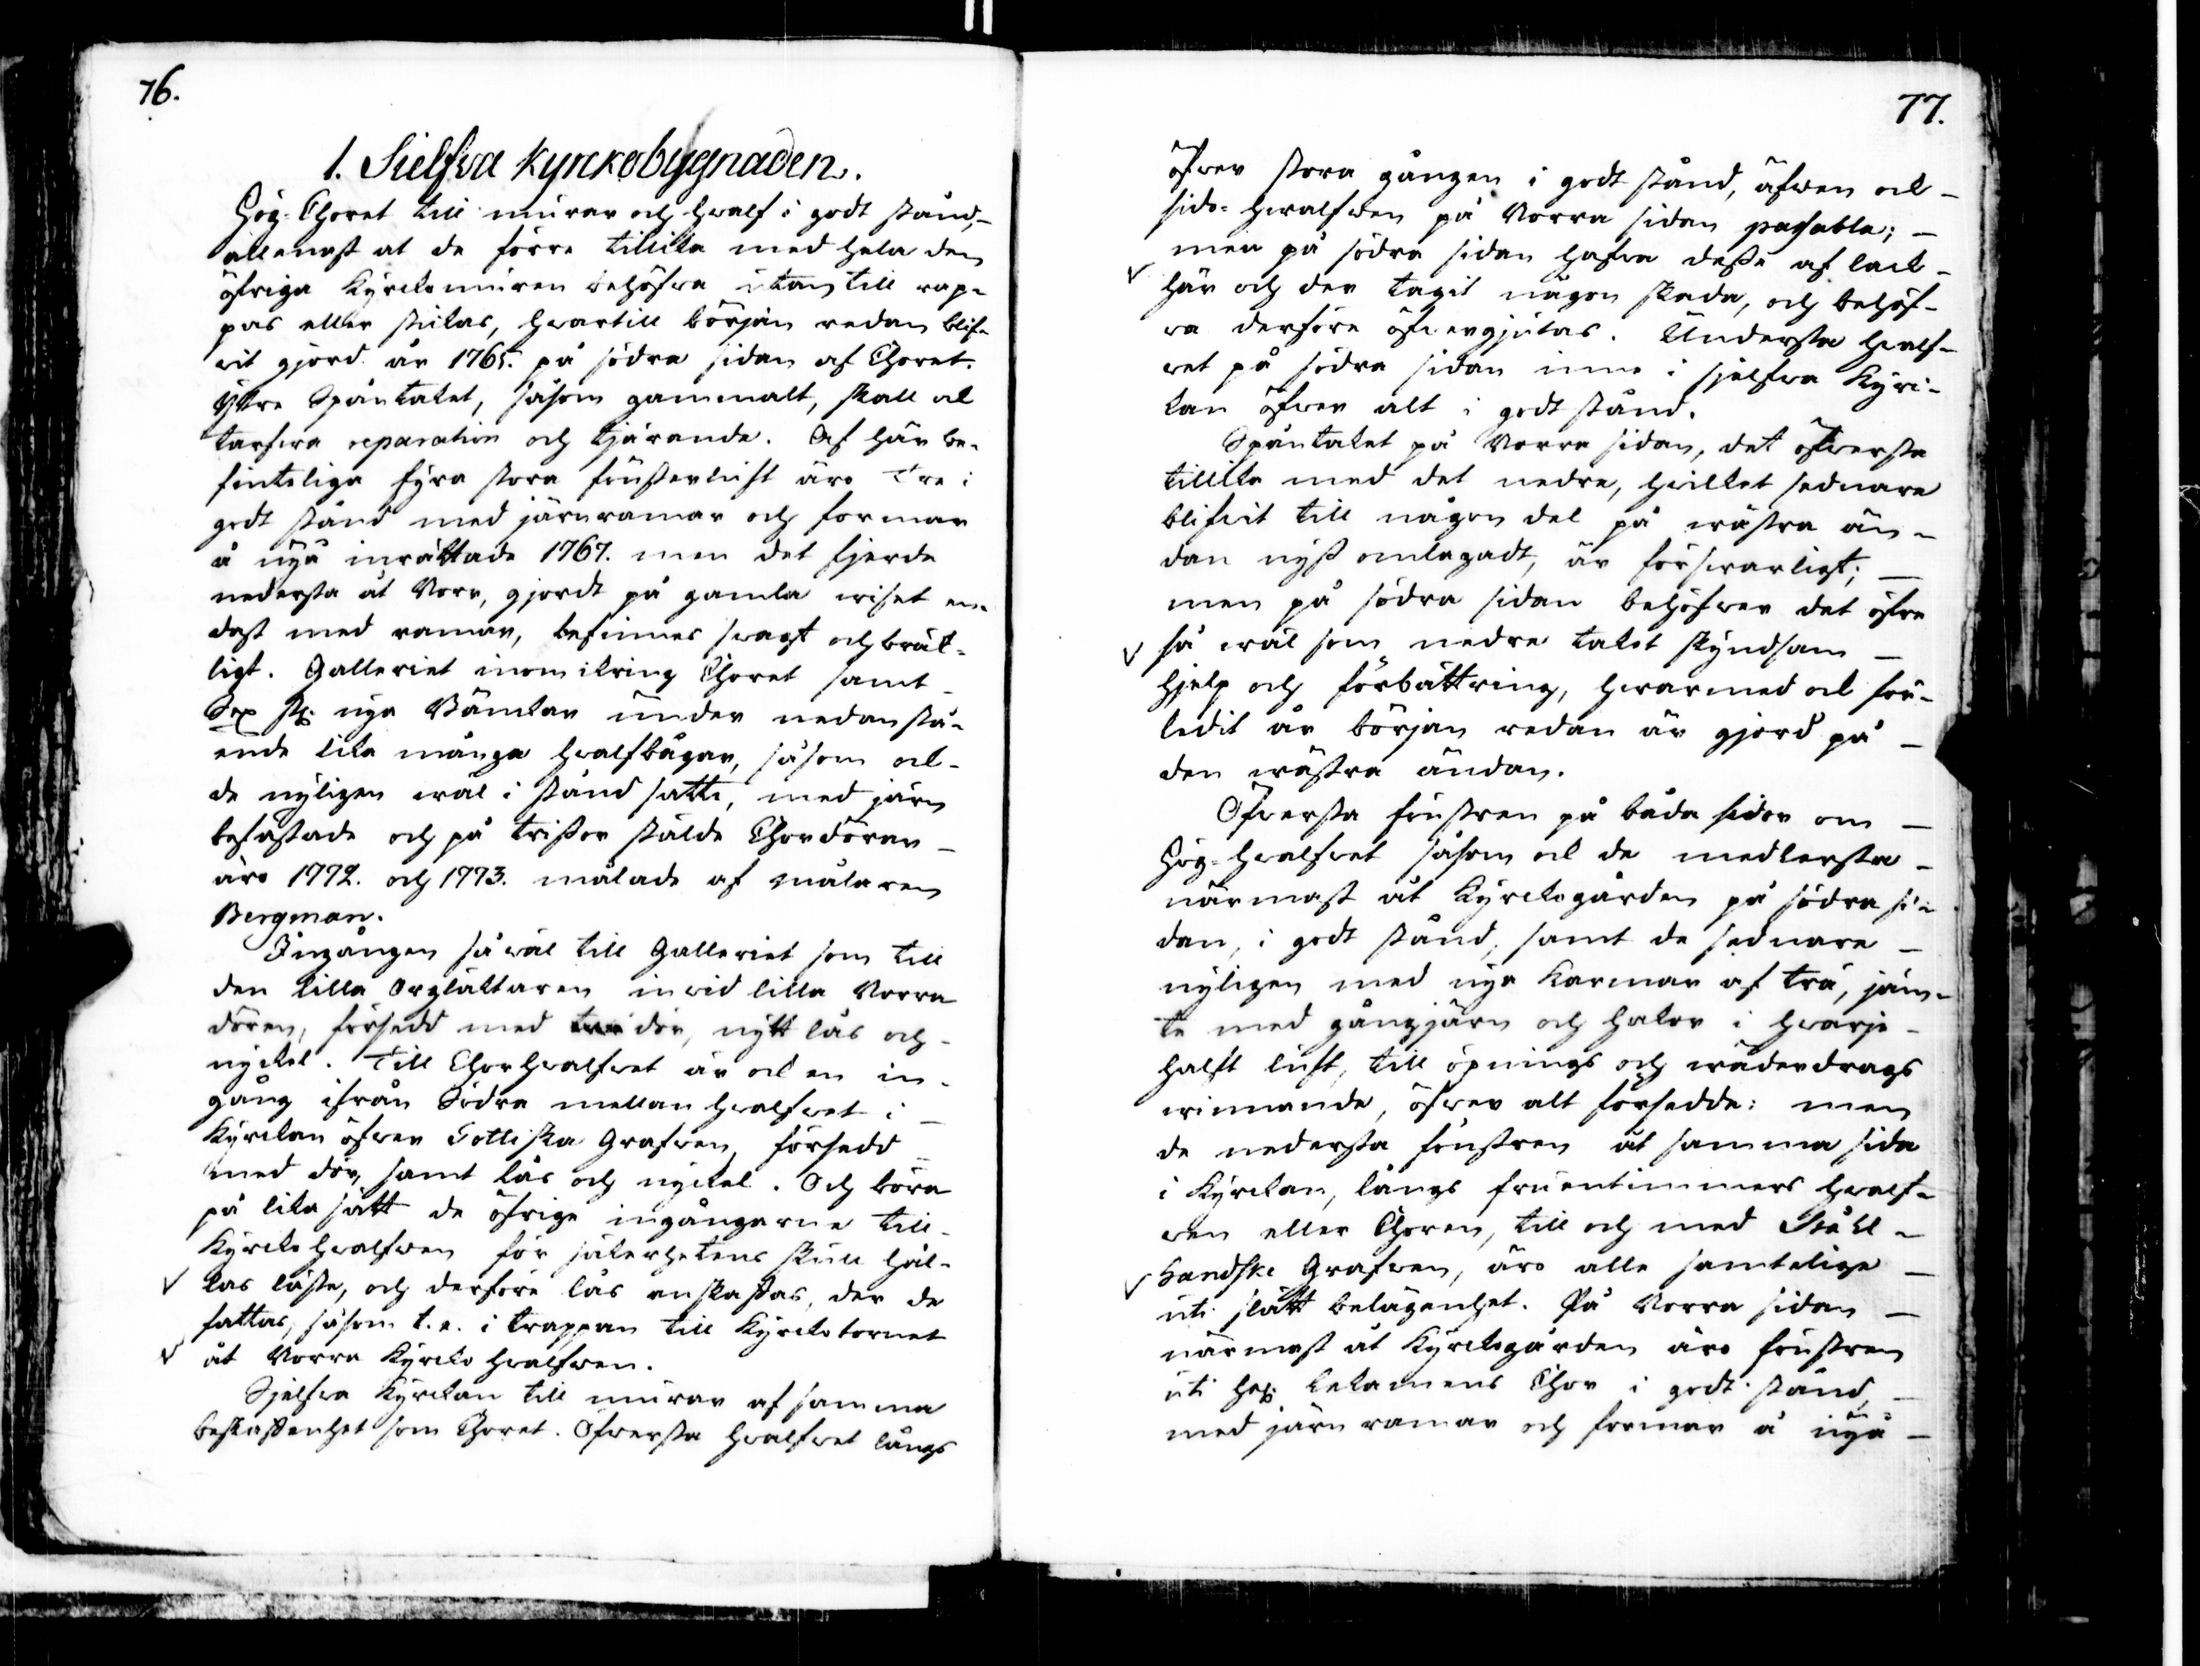 76.
1. Sielfva Kyrckobygnaden.
Hög-Choret till murar och hvalf i godt stånd, -
allenast at de förre tillika med hela den
öfriga Kyrckomuren behöfva utan till rap-
pas eller stukas, hvartill början redan blif-
vit gjord år 1765. på södra sidan af Choret.
Yttre Spåntaket, såsom gammalt, skall ock
tarfva reparation och tjärande. Af här be-
finteliga fyra stora fönsterluft äro Tre i
godt stånd med järnramar och formar
å nyå inrättade 1767. men det fjerde
nedersta åt Norr, gjordt på gamla viset en-
dast med ramar, befinnes svagt och bräk-
ligt. Galleriet inom ikring Choret samt -
Sex st. nya Bänckar under nedanstå-
ende lika många hvalfbågar, såsom ock -
de nyligen wäl i stånd satte, med järn
befästade och på trissor stälde Chordörar -
äro 1772. och 1773. målade af målaren
Bergman.
Ingången så wäl till Galleriet som till
den lilla Orgläktaren inwid lilla Norra
dören, försedd med dör, nytt lås och -
nyckel. Till Chorhvalfvet är ock en in-
gång ifrån Södra mellanhvalfvet i -
Kyrckan öfver Gottiska Grafven, försedd -
med dör, samt lås och nyckel. Och böra
på lika sätt de öfrige ingångarne till -
Kyrckohvalfven för säkerhetens skull hål-
√ las låste, och derföre lås anskaffas, der de
fattas, såsom t. e. i trappan till Kyrckotornet
√ åt Norra Kyrcko hvalfven.
Sjelfva Kyrckan till murar af samma
beskaffenhet som Choret. Öfversta hvalfvet längs
77.
öfver stora gången i godt stånd, äfven ock -
sido-hvalfven på Norra sidan passable; -
√ men på södra sidan hafva desse af läck -
här och der tagit någon skada, och behöf-
va derföre öfvergjutas. Understa hvalf-
vet på södra sidan inne i sjelfva Kyrc-
kan öfver alt i godt stånd.
Spåntaket på Norra sidan, det öfversta
tillika med det nedre, hvilket sednare
blifvit till någon del på wästra än-
dan nyss omlagadt, är försvarligt; -
men på södra sidan behöfver det öfre
√ så wäl som nedre taket skyndsam -
hjelp och förbättring, hvarmed ock för-
ledit år början redan är gjord på -
den wästra ändan.
Öfversta fönstren på båda sidor om -
Hög-hvalfvet såsom ock de medlersta -
närmast åt Kyrckogården på södra si-
dan, i godt stånd, samt de sednare -
nyligen med nya Karmar af trä, jäm-
te med gångjärn och hakor i hvarje -
halft luft, till öpnings och wäderdrags
winnande, öfver alt försedde: men
de nedersta fönstren åt samma sida
i Kyrckan, längs fruentimmers hvalf-
ven eller Choren, till och med Stål-
√ Handske Grafven, äro alle samtelige -
uti slätt belägenhet. På Norra sidan -
närmast åt Kyrckogården äro fönstren
uti Lekamens Chor i godt stånd, -
med järn ramar och formar å nyå -